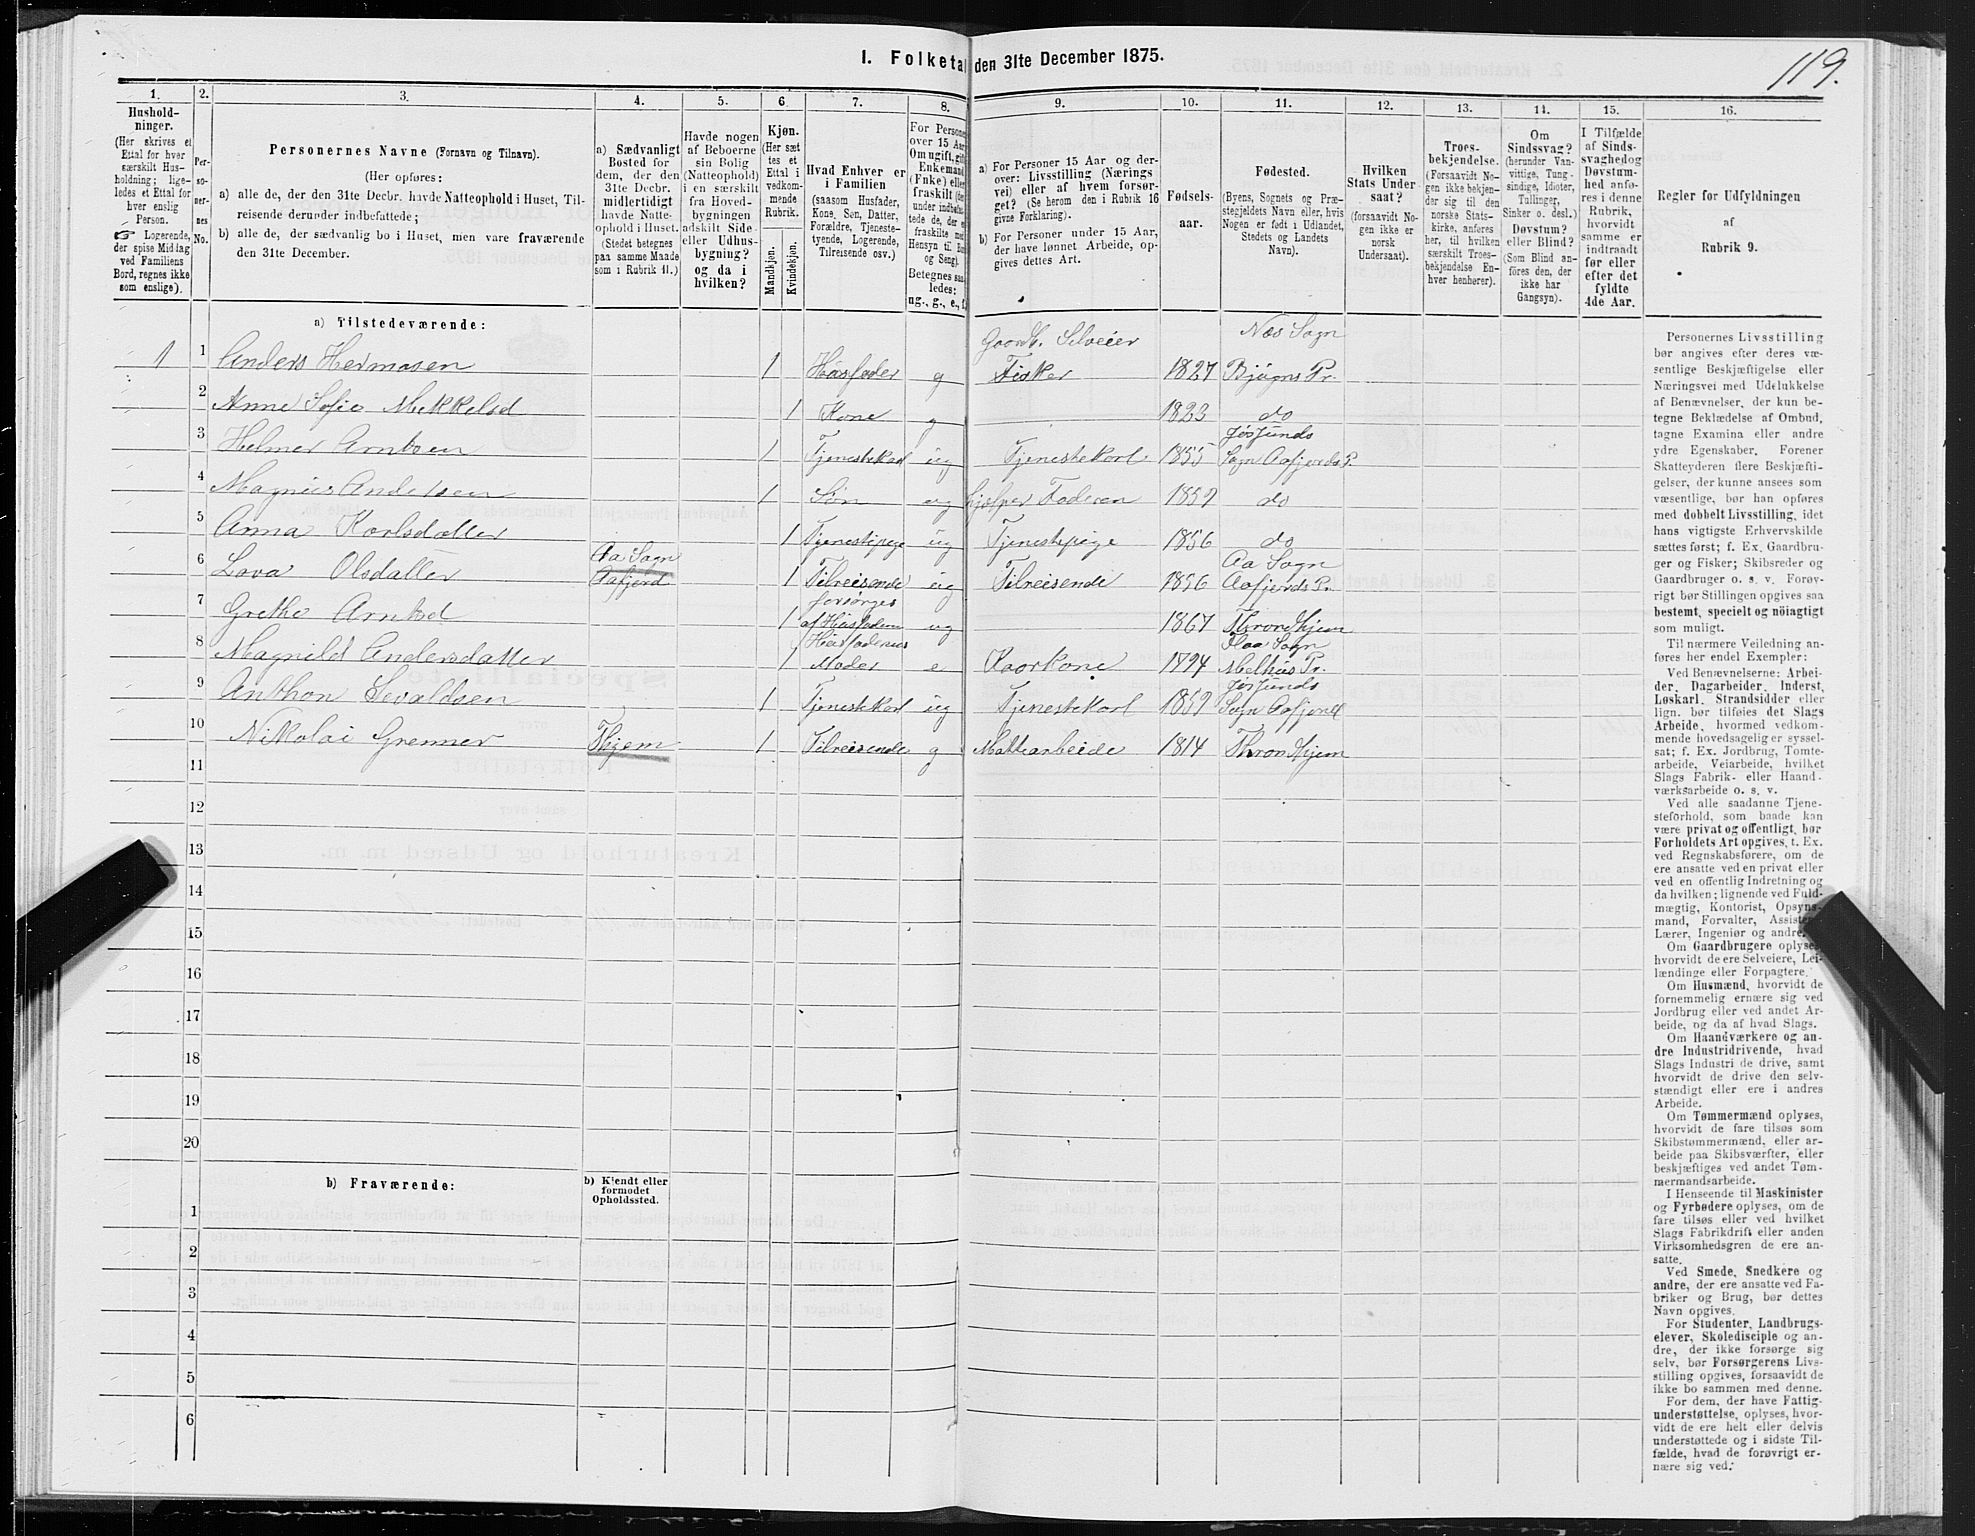 119.
I. Folketal den 31te December 1875.
1. 2. 3. 4. 5. 6. 7. 8. 9. 10. 11. 12. 13. 14. 15. 16.
Hushold-
ninger.
(Her skrives et
Ettal for hver
særskilt Hus-
holdning; lige-
ledes et Ettal for
hver enslig
Person.
☞ Logerende,
der spise Middag
ved Familiens
Bord, regnes ikke
som enslige).
Per-
so-
ner-
nes
No.
Personernes Navne (Fornavn og Tilnavn).
(Her opføres:
a) alle de, der den 31te Decbr. havde Natteophold i Huset, Til-
reisende derunder indbefattede;
b) alle de, der sædvanlig bo i Huset, men vare fraværende
den 31te December.
a) Sædvanligt
Bosted for
dem, der den
31te Decbr.
midlertidigt
havde Natte-
ophold i Huset.
(Stedet betegnes
paa samme Maade
som i Rubrik 11.)
Havde nogen
af Beboerne
sin Bolig
(Natteophold)
i en særskilt
fra Hoved-
bygningen
adskilt Side-
eller Udhus-
bygning?
og da i
hvilken?
Kjøn.
(Her sæt-
tes et
Ettal i
vedkom-
mende
Rubrik.
Mandkjøn.
Kvindekjøn.
Hvad Enhver er
i Familien
(saasom Husfader,
Kone, Søn, Datter,
Forældre, Tjeneste-
tyende, Logerende,
Tilreisende osv.)
For Personer
over 15 Aar
Om ugift, gift,
Enkemand
(Enke) eller
fraskilt
under indbefat-
tede de, der ere
fraskilte med
Hensyn til Bord
og Seng).
Betegnes saa-
ledes:
ug., g., e., f.
a) For Personer 15 Aar og der-
over: Livsstilling (Nærings-
vei) eller af hvem forsør-
get? (Se herom den i Rubrik 16
givne Forklaring).
b) For Personer under 15 Aar,
der have lønnet Arbeide, op-
gives dettes Art.
Fødsels-
aar.
Fødested.
(Byens, Sognets og Præ-
stegjeldets Navn eller, hvis
Nogen er født i Udlandet,
Stedets og Landets
Navn).
Hvilken
Stats Under-
saat?
(forsaavidt No-
gen ikke er
norsk
Undersaat).
Troes-
bekjendelse.
(Forsaavidt No-
gen ikke bekjen-
der sig til den
norske Stats-
kirke, anføres
her, til hvilken
særskilt Troes-
bekjendelse En-
hver henhører).
Om
Sindssvag?
(herunder Van-
vittige, Tung-
sindige, Idioter,
Tullinger,
Sinker o. desl.)
Døvstum?
eller Blind?
(Som Blind an-
føres den, der
ikke har
Gangsyn).
I Tilfælde
af Sinds-
svaghed og
Døvstum-
hed anfø-
res i denne
Rubrik,
hvorvidt
samme er
indtraadt
før eller
efter det
fyldte
4de Aar.
Regler for Udfyldningen
af
Rubrik 9.
a) Tilstedeværende:
Gaardb. Selveier Næs Sogn
1 1 Anders Hermosen 1 Husfader g Fisker 1827 Bjugns Pr.
2 Anne Sofie Mekkelsd 1 Kone g 1823 do
Jøssunds
3 Helmer Arntsen 1 Tjenestekarl ug Tjenestekarl 1855 Sogn Aafjords P.
4 Magnus Andersen 1 Søn ug hjelper Faderen 1859 do
5 Anna Karlsdatter 1 Tjenestepige ug Tjenestepige 1856 do
Aa Sogn Aa Sogn
6 Lova Olsdatter Aafjord 1 Tilreisende ug Tilreisende 1856 Aafjords Pr.
forsørges
7 Grethe Arntsd 1 af Husfaderen ug 1867 Throndhjem
Husfaderens Flaa Sogn
8 Magnild Andersdatter 1 Moder e Kaarkone 1794 Melhus Pr.
Jøssunds
9 Anthon Sevaldsen 1 Tjenestekarl ug Tjenestekarl 1859 Sogn Aafjord
10 Nikolai Grenner Thjem 1 Tilreisende g Mattearbeide 1814 Throndhjem
11
12
13
14
15
16
17
18
19
20
b) Fraværende:
b) Kjendt eller
formodet
Opholdssted.
1
2
3
4
5
6
Personernes Livsstilling
bør angives efter deres væ-
sentlige Beskjæftigelse eller
Næringsvei med Udelukkelse
af Benævnelser, der kun be-
tegne Beklædelse af Ombud,
tagne Examina eller andre
ydre Egenskaber. Forener
Skatteyderen flere Beskjæfti-
gelser, der kunne ansees som
væsentlige, bør han opføres
med dobbelt Livsstilling, idet
hans vigtigste Erhvervskilde
sættes først; f. Ex. Gaardbru-
ger og Fisker; Skibsreder og
Gaardbruger o. s. v. Forøv-
rigt bør Stillingen opgives saa
bestemt, specielt og nöiagtigt
som muligt.
Til nærmere Veiledning an-
føres her endel Exempler:
Ved Benævnelserne: Arbei-
der, Dagarbeider, Inderst,
Løskarl, Strandsidder eller
lign. bør tilføies det Slags
Arbeide, hvormed vedkom-
mende hovedsagelig er syssel-
sat; f. Ex. Jordbrug, Tomte-
arbeide, Veiarbeide, hvilket
Slags Fabrik- eller Haand-
værksarbeide o. s. v.
Ved alle saadanne Tjene-
steforhold, som baade kan
være privat og offentligt, bør
Forholdets Art opgives, t. Ex.
ved Regnskabsførere, om de
ere ansatte ved en privat eller
ved en offentlig Indretning og
da hvilken; lignende ved Fuld-
mægtig, Kontorist, Opsyns-
mand, Forvalter, Assistent,
Lærer, Ingeniør og andre.
Om Gaardbrugere oplyses,
hvorvidt de ere Selveiere, Lei-
lændinge eller Forpagtere.
Om Husmænd, hvorvidt de
fornemmelig ernære sig ved
Jordbrug eller ved andet Ar-
beide, og da af hvad Slags.
Om Haandværkere og an-
dre Industridrivende, hvad
Slags Industri de drive, samt
hvorvidt de drive den selv-
stændigt eller ere i andres
Arbeide.
Om Tømmermænd oplyses,
hvorvidt de fare tilsøs som
Skibstømmermænd, eller ar-
beide paa Skibsværfter, eller
beskjæftiges ved andet Tøm-
mermandsarbeide.
I Henseende til Maskinister
og Fyrbødere oplyses, om de
fare tilsøs eller ved hvilket
Slags Fabrikdrift eller anden
Virksomhedsgren de ere an-
satte.
Ved Smede, Snedkere og
andre, der ere ansatte ved Fa-
briker og Brug, bør dettes
Navn opgives.
For Studenter, Landbrugs-
elever, Skoledisciple og an-
dre, der ikke forsørge sig
selv, bør Forsørgerens Livs-
stilling opgives, forsaavidt de
ikke bo sammen med denne.
For dem, der have Fattig-
understøttelse, oplyses, hvor-
vidt de ere helt eller delvis
understøttede og i sidste Til-
fælde, hvad de forøvrigt er-
nære sig ved.